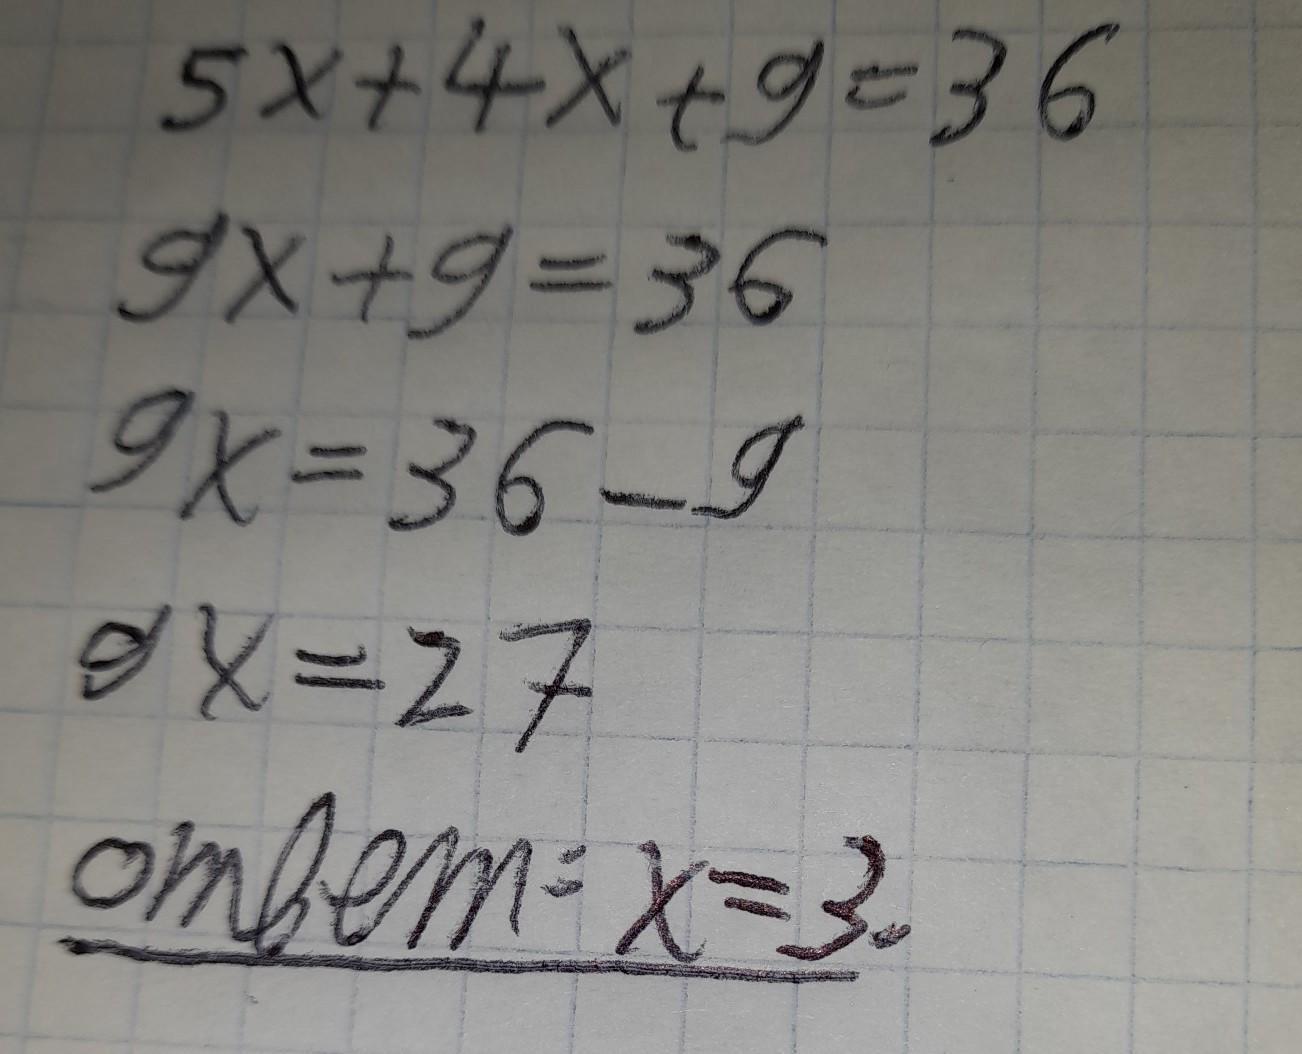 5x+4x+9=36
9x+9=36
9x=36-9
9x=27
ответ: x=3.